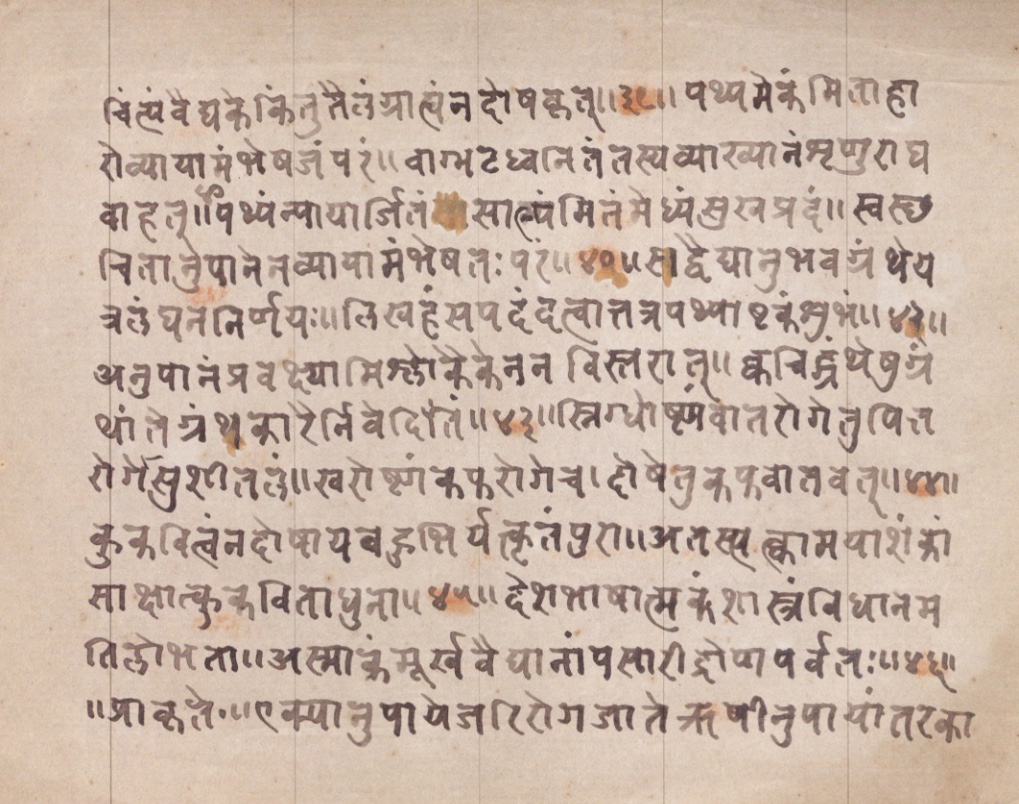 चिंत्यं वैद्यके किंतु तैलं ग्राल्पं न दोषकृत्॥३९॥ पथ्यमेकं मिताहा
रो व्यायामं भेषजं परं॥ वाग्भटध्वनितं तस्य व्याख्यानं शृणु राघ
वाहत्॥ पथ्यं न्यायार्जितं सात्म्यं मितं मेध्यं सुखप्रदं॥ स्वस्छ
चितानुपानेन व्यायामं भेषत्तः परं॥४०॥ साद्वैद्यानुभवग्रंथेय
त्रलंघननिर्णयः॥ लिखहंसपदं दत्वा तत्र पथ्याष्टकं शुभं॥४१॥
अनुपानं प्रवक्ष्यामि श्लोकेकेन न विस्तरात्॥ क्वचिद्ग्रंथेषु ग्रं
थांते ग्रंथकारैर्निवेदितं॥४३॥ स्निग्धोष्णं वातरोगे तु पित्त
रोगेसु शीतलं॥ खरोष्णं कफरोगे च। दोषे तु कफवातवेत्॥४४॥
कुकवित्वं न दोषाय बहुभिर्यत्कृतं पुरा॥ अतस्त्यक्त्वामयाशंकां
साक्षात्कुकविताधुना॥४५॥ देशभाषात्मकं शास्त्रं विधानम
तिलोभता॥ अस्माकं मूर्खवैद्यानां पसारी द्रोणपर्वतः॥४६॥
॥प्राकृते॥ एक्यानुपाये जरि रोग जाते ऋषीनुपायांतरका